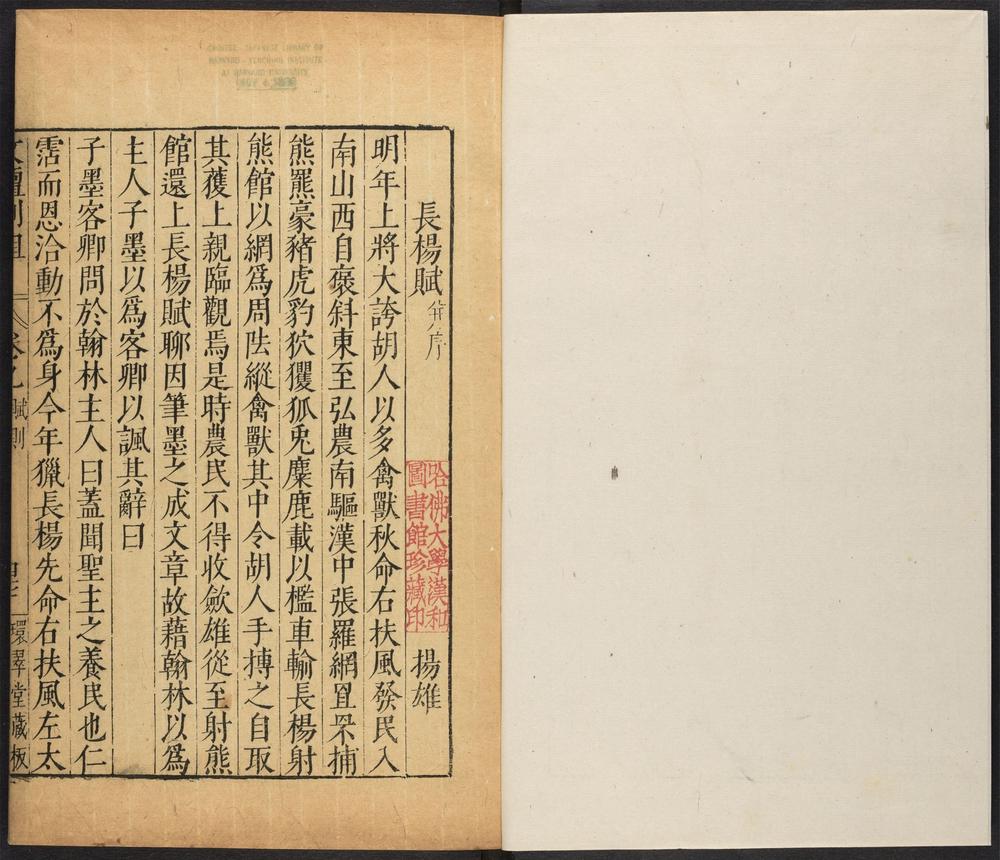 長楊賦并序 揚雄
哈佛大學漢和
圖書館珍藏印
明年上將大誇胡人以多禽獸秋命右扶風發民入
南山西自褒斜東至弘農南驅漢中張羅網罝罘捕
熊羆豪豬虎豹狖玃狐兎麋鹿載以檻車輸長楊射
熊館以網爲周阹縱禽獸其中令胡人手搏之自取
其獲上親臨觀焉是時農民不得收斂雄從至射熊
館還上長楊賦聊因筆墨之成文章故藉翰林以爲
主人子墨以爲客卿以諷其辭曰
子墨客卿問於翰林主人曰蓋聞聖主之養民也仁
霑而恩洽動不爲身今年獵長楊先命右扶風左太
文壇列俎 卷九 賦則 環翠堂藏板
CHINESE-JAPANESE LIBRARY OF
HARVARD-YENCHING INSTITUTE
AT HARVARD UNIVERSITY